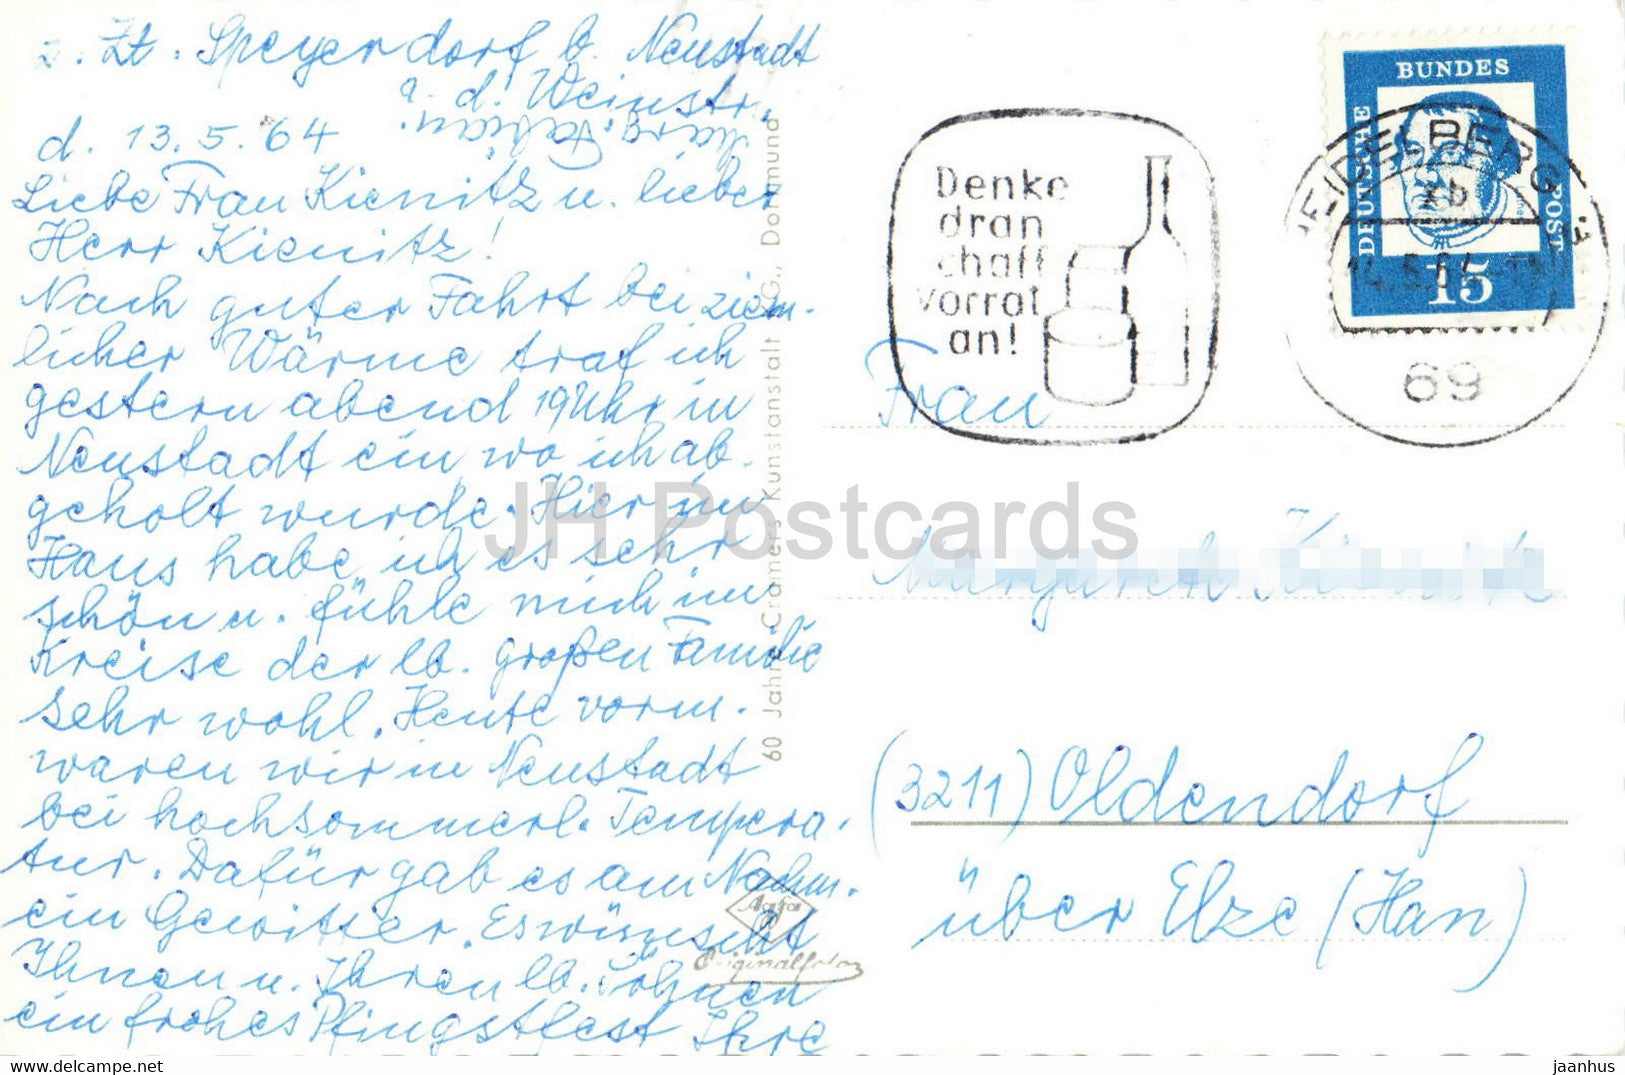 z. Zt. Speyerdorf b. Neustadt
a. d. Weinstr.
d. 13.5.64
Liebe Frau Kienitz u. lieber
Herr Kienitz!
Nach guter Fahrt bei ziem-
licher Wärme traf ich
gestern abend 19 Uhr in
Neustadt ein, wo ich ab-
geholt wurde. Hier im
Haus habe ich es sehr
schön u. fühle mich im
Kreise der lb. großen Familie
sehr wohl. Heute vorm.
waren wir in Neustadt
bei hochsommerl. Tempera-
tur. Dafür gab es am Nachm.
ein Gewitter. Es wünscht
Ihnen u. Ihren lb. Söhnen
ein frohes Pfingstfest Ihre
60 Jahre Cramers Kunstanstalt KG., Dortmund
Agfa
Originalfoto
Denke
dran
schaff
Vorrat
an!
DEUTSCHE
BUNDES
POST
15
HEIDELBERG
xb
14.5.64
69
Frau
(3211) Oldendorf
über Elze (Han)
JH Postcards
https://www.delcampe.net
jaanhus